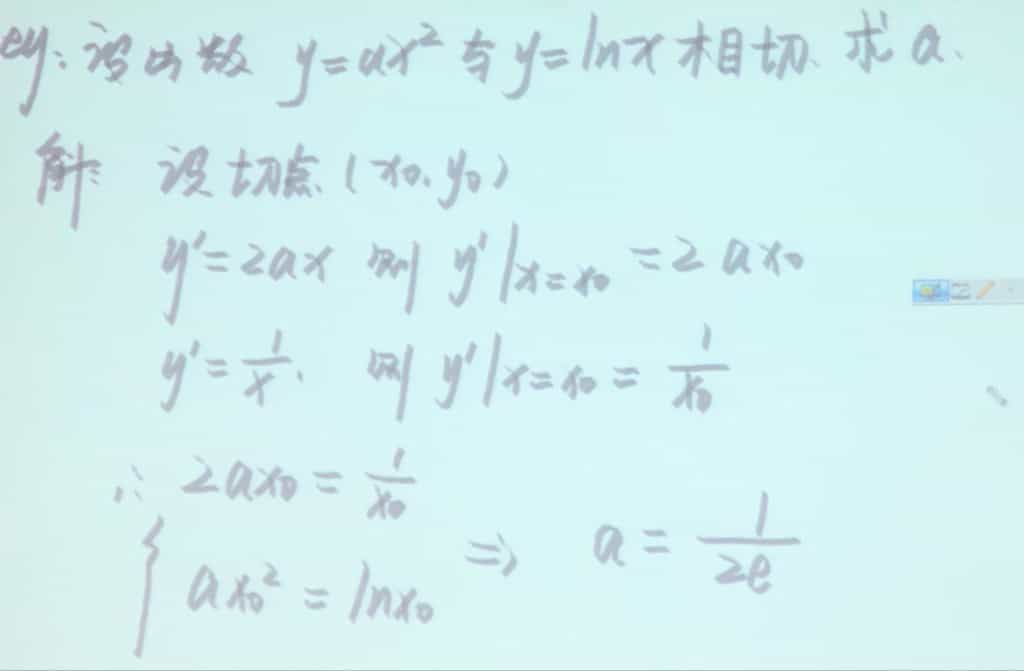 eg: 设函数 y=ax² 与 y=lnx 相切. 求 a.
解: 设切点 (x₀, y₀)
y'=2ax 则 y'|ₓ₌ₓ₀ = 2ax₀
y'=1/x. 则 y'|ₓ₌ₓ₀ = 1/x₀
∴ { 2ax₀ = 1/x₀
ax₀² = lnx₀ ⇒ a = 1/2e